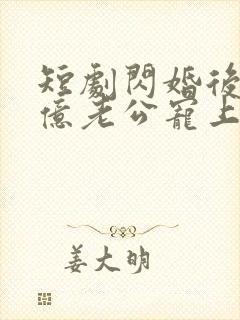 短劇閃婚後
億老公寵上
姜大明